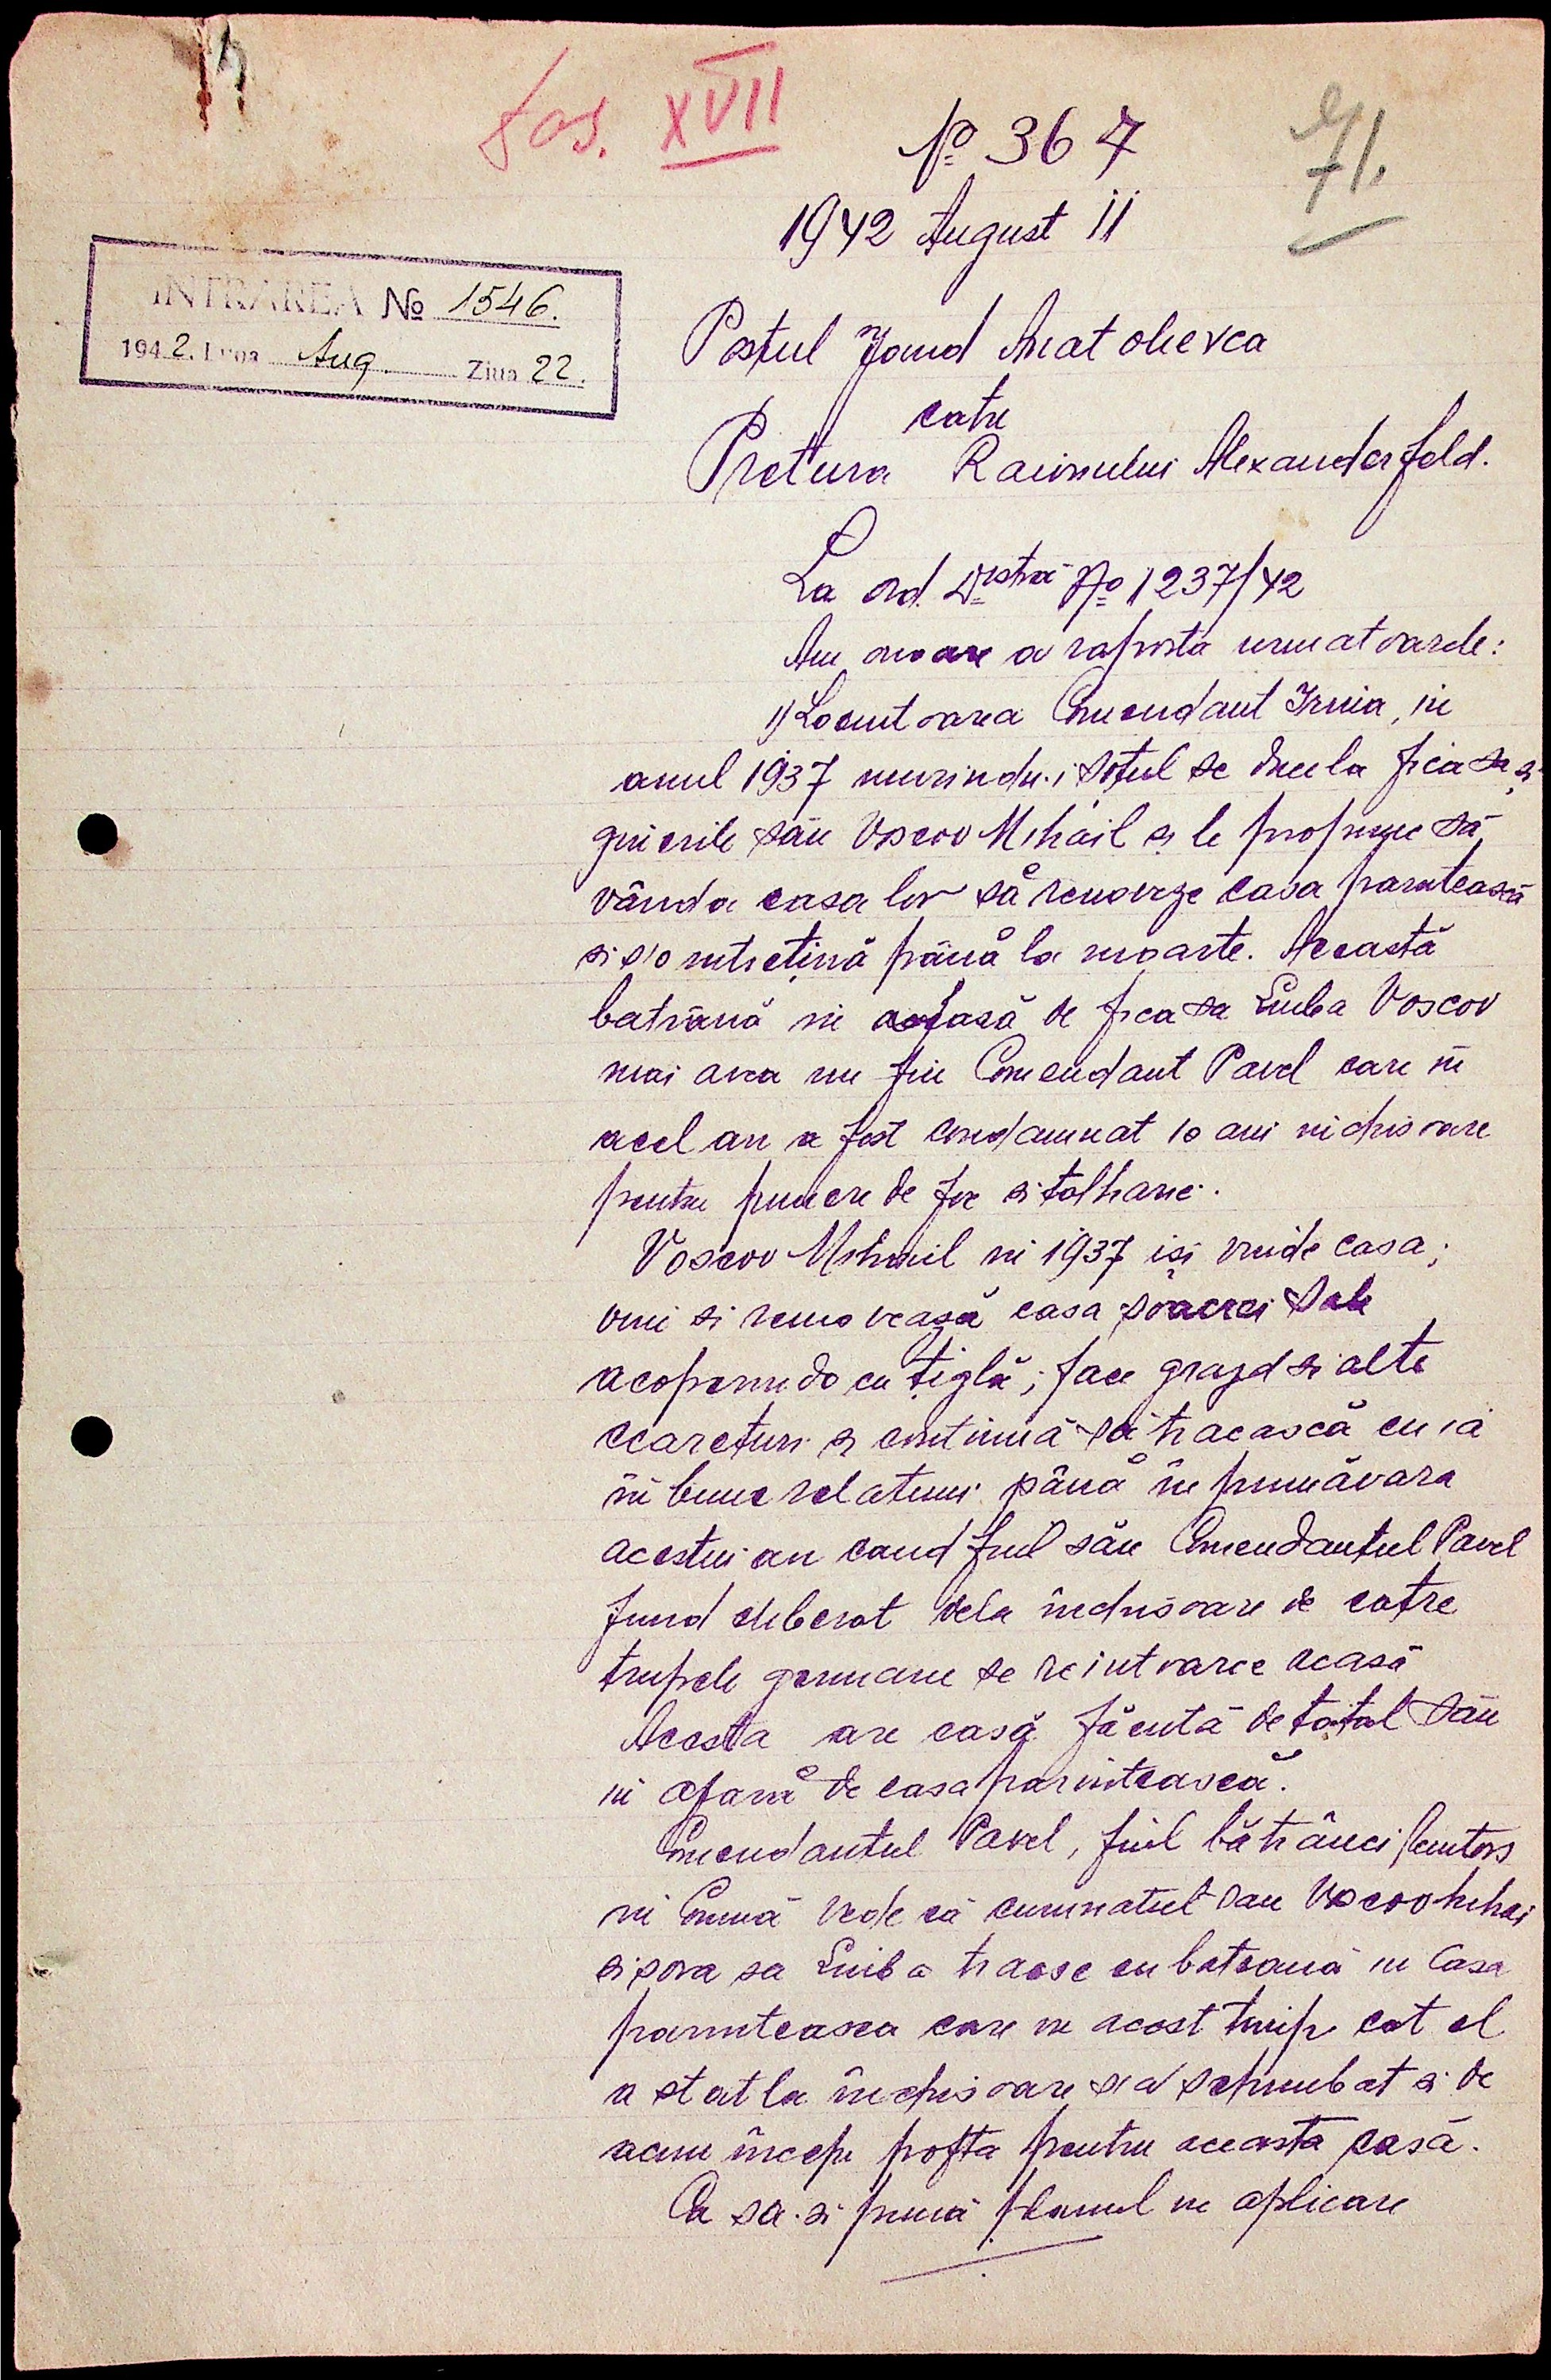 dos. XVII
71.
INTRAREA № 1546.
1942. Luna Aug. Ziua 22.
№ 367
1942 August 11
Postul Jand Anatolievca
catre
Pretura Raionului Alexanderfeld.
La ord. Dvstră № 1237/42
Am onoare a raporta urmatoarele:
1) Locuitoarea Comendant Irina, in
anul 1937 murindu-i soțul se duce la fica sa și
ginerile său Voscov Mihail și le propune să
vânda casa lor să renoveze casa parintească
si s'o intrețină până la moarte. Această
batrână in afară de fica sa Liuba Voscov
mai avea un fiu Comendant Pavel care in
acel an a fost condamnat 10 ani inchisoare
pentru punere de foc si talharie.
Voscov Mihail in 1937 iși vinde casa;
vine si renovează casa soacrei sale
acoperindo cu țiglă; face grajd si alte
acareturi și continuă să traească cu ia
in bune relatiuni până in primăvara
acestui an cand fiul său Comendantul Pavel
fiind eliberat dela inchisoare de catre
trupele germane se reintoarce acasă
Acesta are casă făcută de tatal său
in afară de casa parintească.
Comendantul Pavel, fiul bătrânei reintors
in Comuna vede că cumnatul sau Voscov Mihai
si sora sa Liuba traesc cu batrana in casa
parinteasca care in acest timp cat el
a stat la inchisoare s'a schimbat si de
acum incepe pofta pentru aceasta casă.
Ca sa-si pună planul in aplicare